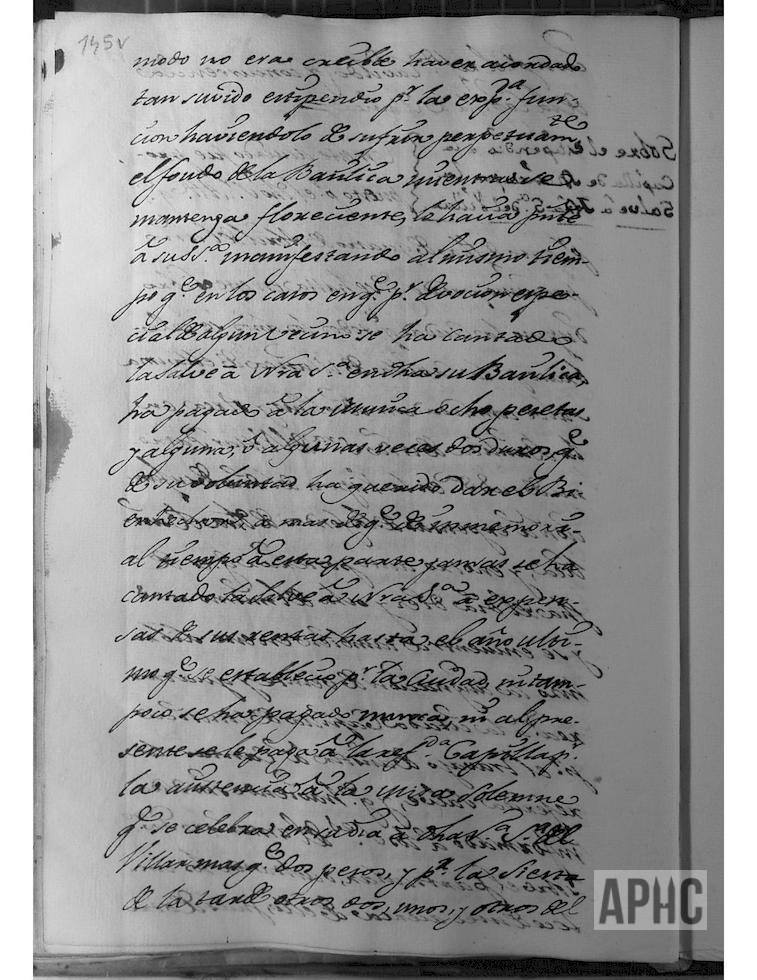 145v
modo no era creible haver acordado
tan suvido estipendio pr. la expda. fun-
cion haviendolo de sufrir perpetuamte
el fondo de la Basilica mientras se
mantenga floreciente, le hacia preste
à su Sa. manifestando al mismo tiem-
po qe. en los casos en qe. pr. devocion espe-
cial de algun vecino se ha cantado
la Salve à Nra Sa. en dha su Basilica,
ha pagado à la musica ocho pesetas
y alguna, ò algunas veces dos duros qe
de su voluntad ha querido dar el Bi-
enhechor à mas de qe. de inmemori-
al tiempo à esta parte jamas se ha
cantado la Salve à Nra Sa. à expen-
sas de sus rentas hasta el año ulti-
mo qe. se establecio pr. la Ciudad, ni tam-
poco se ha pagado nunca, ni al pre-
sente se le paga à la refda. Capilla pr.
la asistencia à la Misa Solemne
qe. se celebra en su dia à dha Sa. del
Villar mas qe. dos pesos, y pr. la Siesta
de la tarde otros dos, unos, y otros del
Sobre el estipendio à la
Capilla de
Salve à Na. Sa. del Villar
APHC